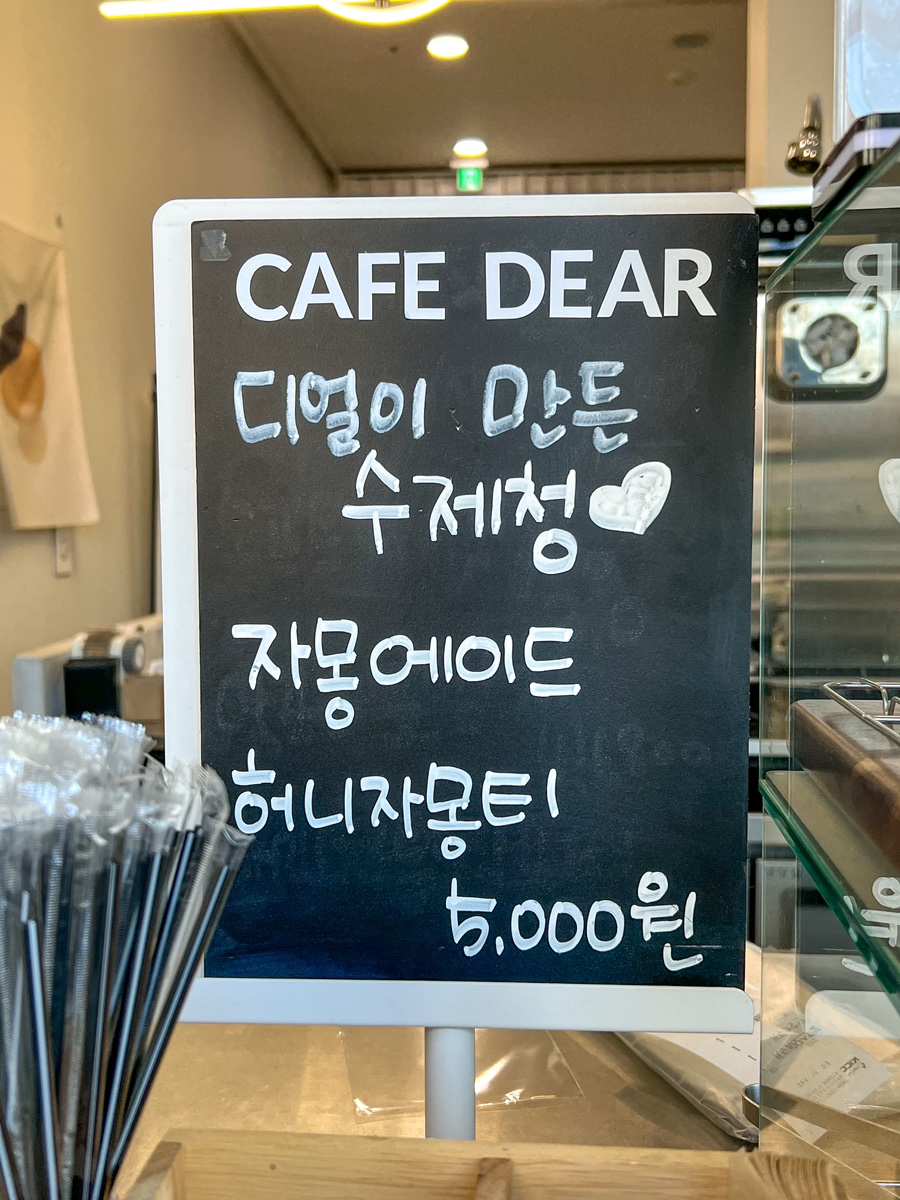 CAFE DEAR
디얼이 만든
수제청
자몽에이드
허니자몽티
5,000원